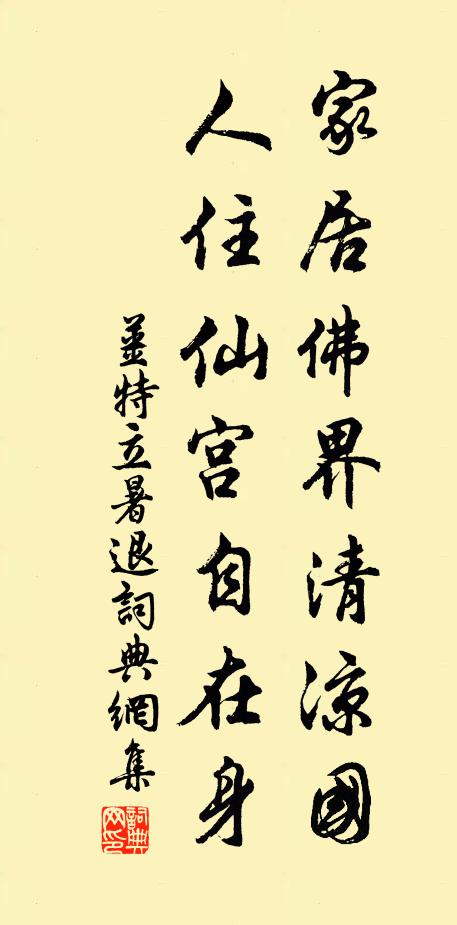 家居佛界清涼國
人住仙宫自在身
姜特立暑退詞典網集
詞典網印